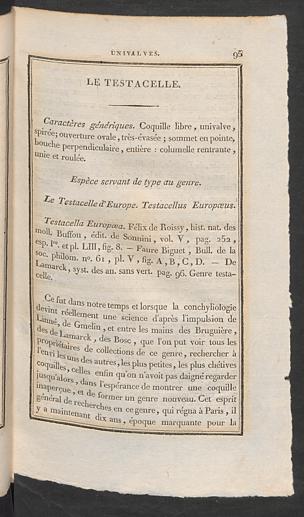 UNIVALVES. 95
LE TESTACELLE.
Caractères génériques. Coquille libre, univalve,
spirée; ouverture ovale, très-évasée; sommet en pointe,
bouche perpendiculaire, entière: columelle rentrante,
unie et roulée.
Espèce servant de type au genre.
Le Testacelle d'Europe. Testacellus Europæus.
Testacella Europæa. Félix de Roissy, hist. nat. des
moll. Buffon, édit. de Sonnini, vol. V, pag. 252,
esp. Ire. et pl. LIII, fig. 8. — Faure Biguet, Bull. de la
soc. philom. no. 61, pl. V, fig. A, B, C, D. — De
Lamarck, syst. des an. sans vert. pag. 96. Genre testa-
celle.
Ce fut dans notre temps et lorsque la conchyliologie
devint réellement une science d'après l'impulsion de
Linné, de Gmelin, et entre les mains des Bruguière,
des de Lamarck, des Bosc, que l'on put voir tous les
propriétaires de collections de ce genre, rechercher à
l'envi les uns des autres, les plus petites, les plus chétives
coquilles, celles enfin qu'on n'avoit pas daigné regarder
jusqu'alors, dans l'espérance de montrer une coquille
inaperçue, et de former un genre nouveau. Cet esprit
général de recherches en ce genre, qui régna à Paris, il
y a maintenant dix ans, époque marquante pour la